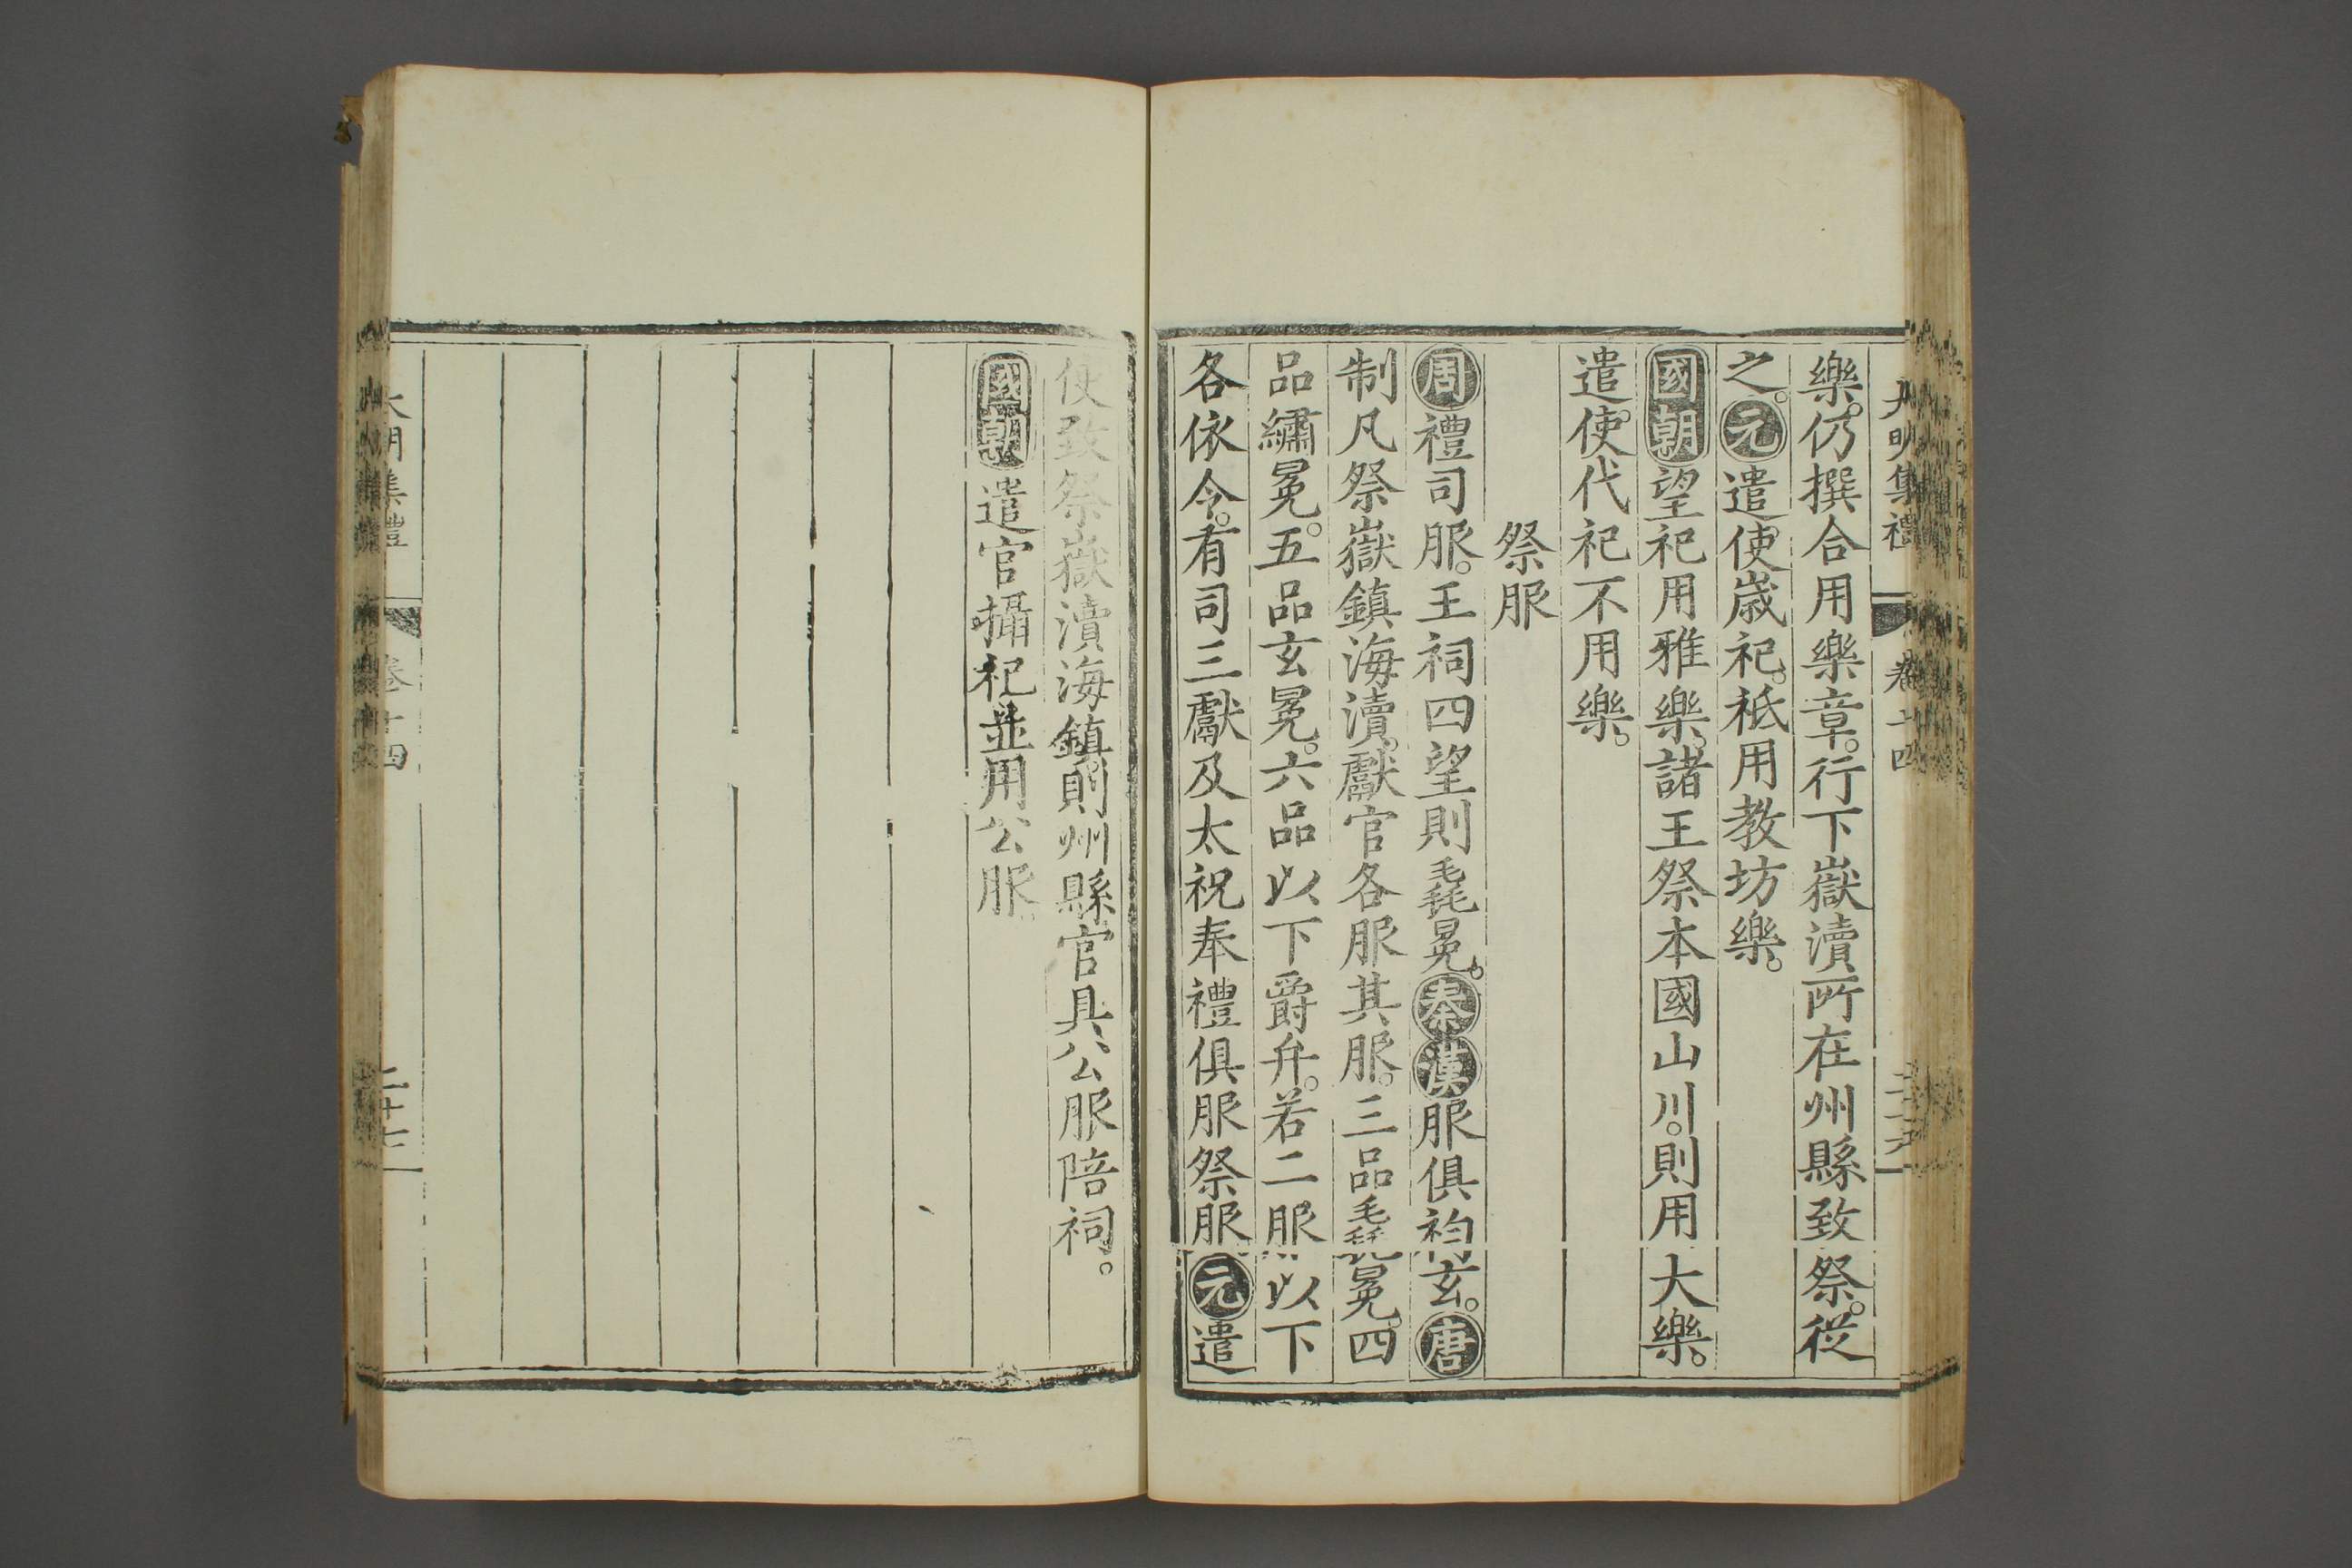 大明集禮 卷十四
樂。仍撰合用樂章。行下嶽瀆所在州縣致祭。從
之。元遣使歲祀。祗用教坊樂。
國朝望祀用雅樂。諸王祭本國山川。則用大樂。
遣使代祀不用樂。
祭服
周禮司服。王祠四望則毳冕。秦漢服俱袀玄。唐
制凡祭嶽鎮海瀆。獻官各服其服。三品毳冕。四
品繡冕。五品玄冕。六品以下爵弁。若二服以下
各依令。有司三獻及太祝奉禮俱服祭服。元遣
使致祭嶽瀆海鎮。則州縣官具公服陪祠。
國朝遣官攝祀並用公服。
大明集禮 卷十四 二十七